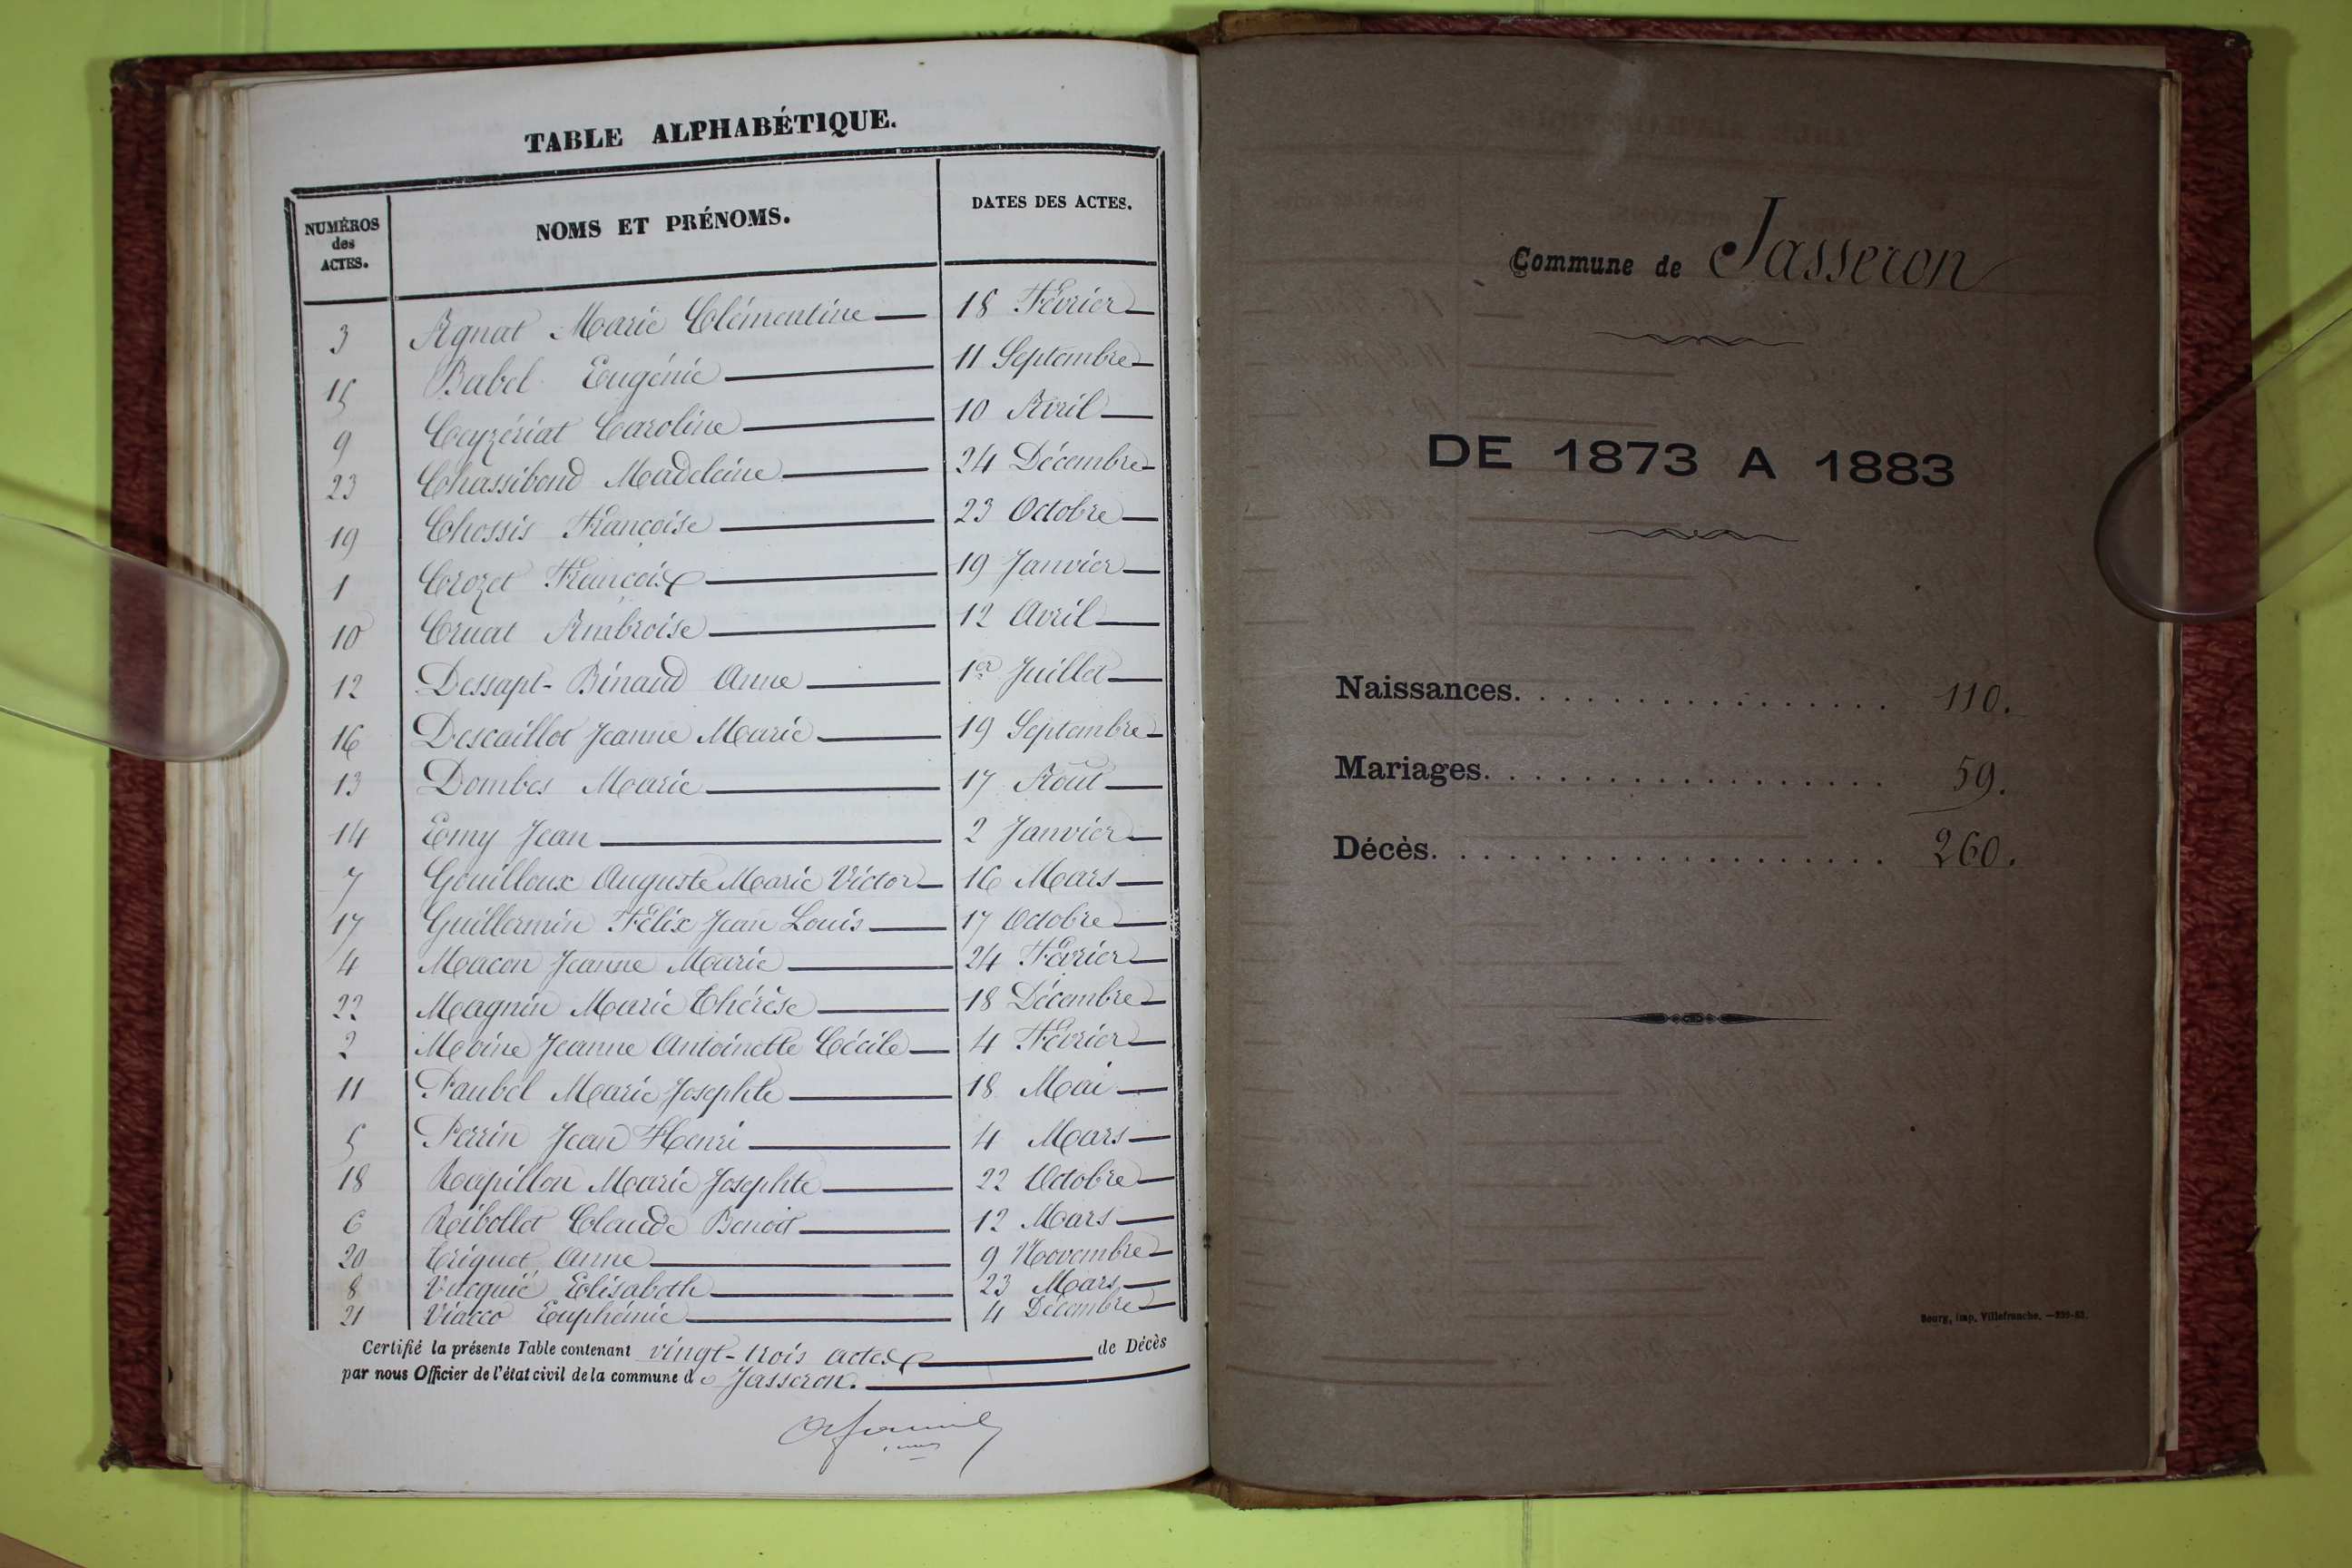 TABLE ALPHABÉTIQUE.
NUMÉROS des ACTES. NOMS ET PRÉNOMS. DATES DES ACTES.
3 Agnat Marie Clémentine 18 Février
15 Babel Eugénie 11 Septembre
9 Ceyzériat Caroline 10 Avril
23 Chassiboud Madeleine 24 Décembre
19 Chossis Françoise 23 Octobre
1 Crozet François 19 Janvier
10 Cruat Ambroise 12 Avril
12 Dessapt-Binaud Anne 1er Juillet
16 Descaillot Jeanne Marie 19 Septembre
13 Dombes Marie 17 Août
14 Emy Jean 2 Janvier
7 Gouilloux Auguste Marie Victor 16 Mars
17 Guillermin Félix Jean Louis 17 Octobre
4 Macon Jeanne Marie 24 Février
22 Magnin Marie Thérèse 18 Décembre
2 Moine Jeanne Antoinette Cécile 4 Février
11 Paubel Marie Josephte 18 Mai
5 Perrin Jean Henri 4 Mars
18 Rapillon Marie Josephte 22 Octobre
6 Reibollet Claude Benoit 12 Mars
20 Triquet Anne 9 Novembre
8 Vacquié Elisabeth 23 Mars
21 Viacco Euphémie 4 Décembre
Certifié la présente Table contenant vingt-trois actes de Décès
par nous Officier de l'état civil de la commune de Jasseron.
Commune de Jasseron
DE 1873 A 1883
Naissances. 110.
Mariages. 59.
Décès. 260.
Bourg, imp. Villefranche.